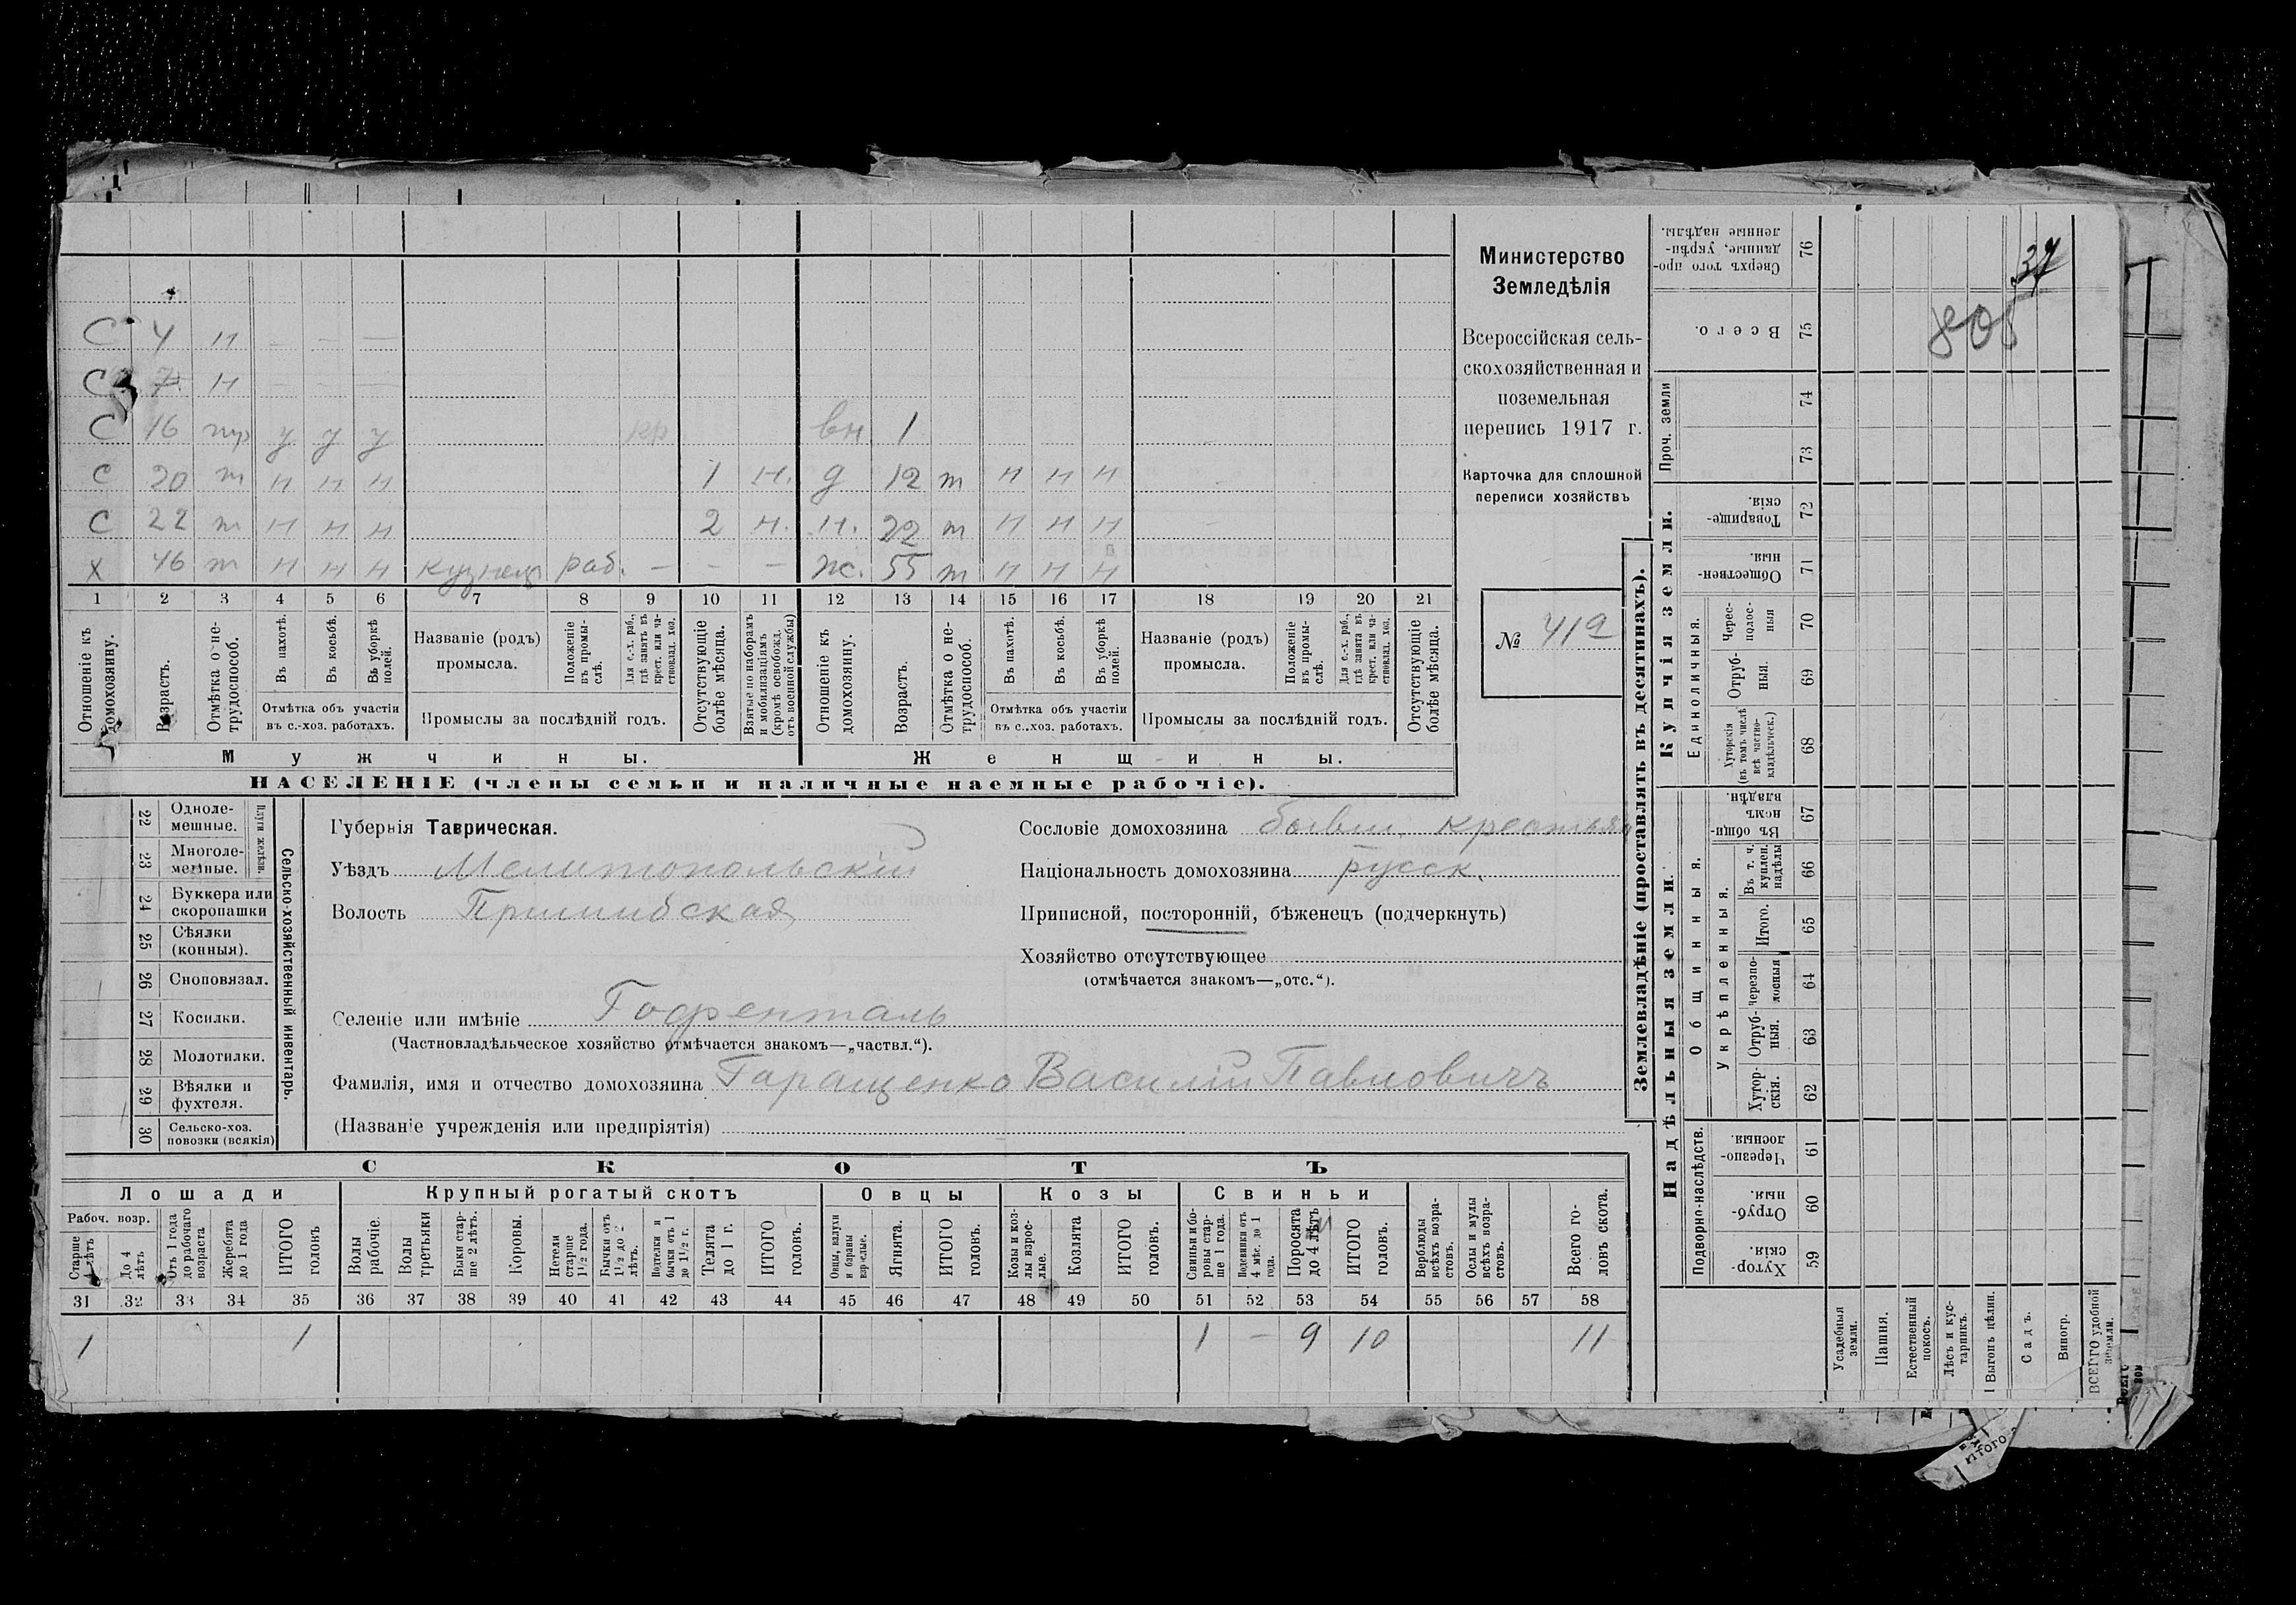 37
805
С 4 н — — —
С 7 н — — —
С 16 пр у у у кр вн 1
С 20 т н н н 1 н. д 12 т н н н
С 22 т н н н 2 н. н. 22 т н н н
Х 46 т н н н кузнец раб. — — — ж. 55 т н н н
1 2 3 4 5 6 7 8 9 10 11 12 13 14 15 16 17 18 19 20 21
Отношеніе къ домохозяину.
Возрастъ.
Отмѣтка о не-трудоспособ.
Въ пахотѣ.
Въ косьбѣ.
Въ уборкѣ полей.
Отмѣтка объ участіи въ с.-хоз. работахъ.
Названіе (родъ) промысла.
Положеніе въ промы-слѣ.
Для с.-х. раб., гдѣ занятъ въ крест. или ча-стновлад. хоз.
Промыслы за послѣдній годъ.
Отсутствующіе болѣе мѣсяца.
Взятые по наборамъ и мобилизаціямъ (кромѣ освобожд. отъ военной службы)
Отношеніе къ домохозяину.
Возрастъ.
Отмѣтка о не-трудоспособ.
Въ пахотѣ.
Въ косьбѣ.
Въ уборкѣ полей.
Отмѣтка объ участіи въ с.-хоз. работахъ.
Названіе (родъ) промысла.
Положеніе въ промы-слѣ.
Для с.-х. раб., гдѣ занята въ крест. или ча-стновлад. хоз.
Промыслы за послѣдній годъ.
Отсутствующіе болѣе мѣсяца.
Мужчины. Женщины.
НАСЕЛЕНІЕ (члены семьи и наличные наемные рабочіе).
Министерство
Земледѣлія
Всероссійская сель-
скохозяйственная и
поземельная
перепись 1917 г.
Карточка для сплошной
переписи хозяйствъ
№ 419
22 Одноле-мешные.
23 Многоле-мешные.
Плуги желѣзн.
24 Буккера или скоропашки
25 Сѣялки (конныя).
26 Сноповязал.
27 Косилки.
28 Молотилки.
29 Вѣялки и фухтеля.
30 Сельско-хоз. повозки (всякія)
Сельско-хозяйственный инвентарь.
Губернія Таврическая.
Уѣздъ Мелитопольскій
Волость Пришибская
Селеніе или имѣніе Гофенталь
(Частновладѣльческое хозяйство отмѣчается знакомъ—„частвл.“).
Фамилія, имя и отчество домохозяина Гаращенко Василій Павловичъ
(Названіе учрежденія или предпріятія)
Сословіе домохозяина бывш. крестьян
Національность домохозяина русск.
Приписной, посторонній, бѣженецъ (подчеркнуть)
Хозяйство отсутствующее
(отмѣчается знакомъ—„отс.“).
СКОТЪ
Лошади Крупный рогатый скотъ Овцы Козы Свиньи
Рабоч. возр.
Старше 4 лѣтъ
До 4 лѣтъ
Отъ 1 года до рабочаго возраста
Жеребята до 1 года
ИТОГО головъ
Волы рабочіе.
Волы третьяки
Быки стар-ше 2 лѣтъ.
Коровы.
Нетели старше 1½ года.
Бычки отъ 1½ до 2 лѣтъ.
Подтелки и бычки отъ 1 до 1½ г.
Телята до 1 г.
ИТОГО головъ.
Овцы, валухи и бараны взрослые.
Ягнята.
ИТОГО головъ.
Козы и коз-лы взрос-лые.
Козлята
ИТОГО головъ.
Свиньи и бо-ровы стар-ше 1 года.
Подсвинки отъ 4 мѣс. до 1 года.
Поросята до 4 лѣтъ м
ИТОГО головъ.
Верблюды всѣхъ возра-стовъ.
Ослы и мулы всѣхъ возра-стовъ.
Всего го-ловъ скота.
31 32 33 34 35 36 37 38 39 40 41 42 43 44 45 46 47 48 49 50 51 52 53 54 55 56 57 58
1 1 1 — 9 10 11
Землевладѣніе (проставлять въ десятинахъ).
Купчія земли.
Надѣльныя земли.
Сверхъ того про-данные, укрѣп-ленные надѣлы. 76
Всего. 75
Проч. земли 74 73
Товарище-скія. 72
Обществен-ныя. 71
Единоличныя.
Черес-полос-ныя 70
Отруб-ныя. 69
Хуторскія (въ томъ числѣ всѣ частно-владѣльческ.) 68
Общинныя.
Въ общин-номъ владѣн. 67
Укрѣпленныя.
Въ т. ч. куплен. надѣлы 66
Итого. 65
Черезпо-лосныя 64
Отруб-ныя. 63
Хутор-скія. 62
Подворно-наслѣдств.
Черезпо-лосныя. 61
Отруб-ныя. 60
Хутор-скія. 59
Усадебныя земли.
Пашня.
Естественный покосъ.
Лѣсъ и кус-тарникъ.
Выгонъ цѣлин.
Садъ.
Виногр.
ВСЕГО удобной земли.
Итого